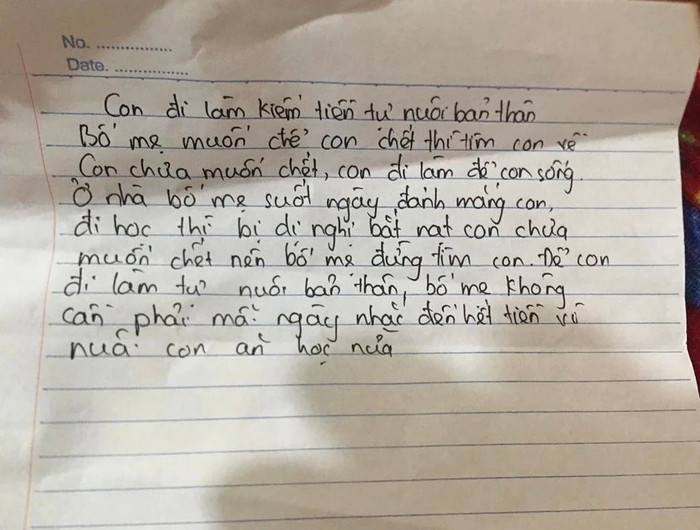 No. ................
Date. ................
Con đi làm kiếm tiền tự nuôi bản thân
Bố mẹ muốn để con chết thì tìm con về
Con chưa muốn chết, con đi làm để con sống.
Ở nhà bố mẹ suốt ngày đánh mắng con,
đi học thì bị dị nghị bắt nạt con chưa
muốn chết nên bố mẹ đừng tìm con. Để con
đi làm tự nuôi bản thân, bố mẹ không
cần phải mỗi ngày nhắc đến hết tiền vì
nuôi con ăn học nữa